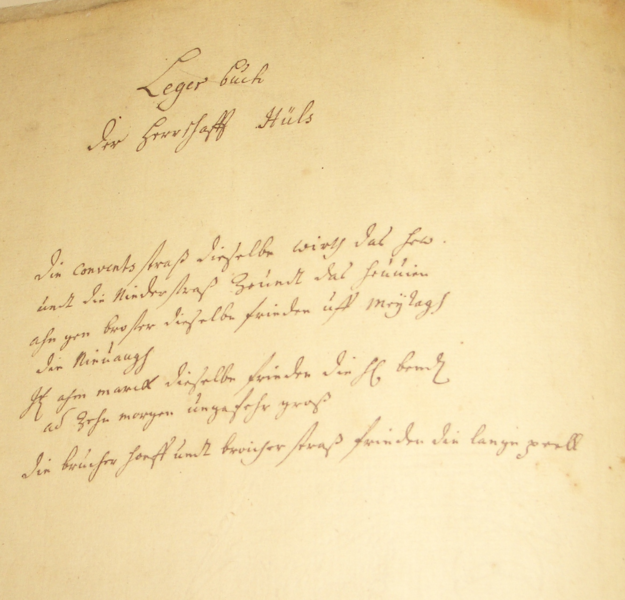 Leger buch
der Herrschafft Hüls
die convents straß dieselbe wirth das hew
undt die Niederstraß Zeundt das
ahn gen broter dieselbe frieden uff meÿtagh
die
ahm marckt dieselbe frieden die bendt
ad Zehn morgen ungefehr groß
die brücher hoeff undt broicher straß frieden die lange peell